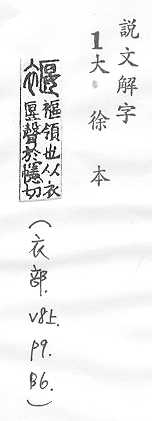 說文解字
1大徐本
褗 䙅領也从衣
匽聲於幰切
（衣部. V8上. P9. B6.）